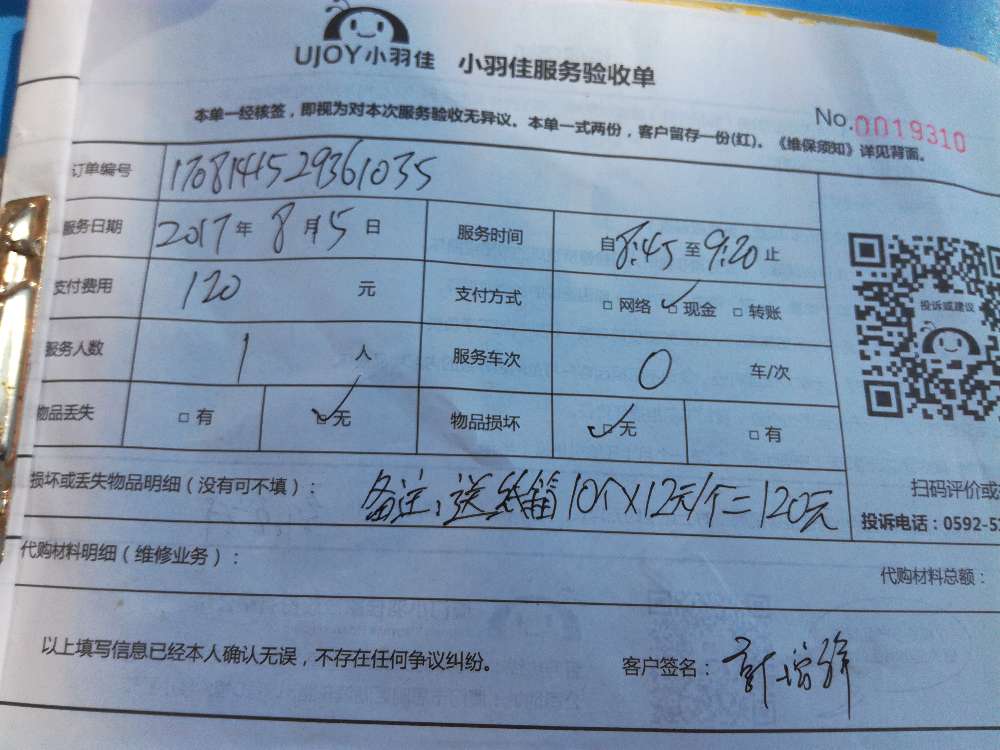 UJOY小羽佳 小羽佳服务验收单
No.0019310
本单一经核签，即视为对本次服务验收无异议。本单一式两份，客户留存一份(红)。《维保须知》详见背面。
订单编号 1708144529361035
服务日期 2017年8月15日 服务时间 自8:45至9:20止
支付费用 120 元 支付方式 □网络 ☑现金 □转账
投诉或建议
服务人数 1 人 服务车次 0 车/次
物品丢失 □有 ☑无 物品损坏 ☑无 □有
损坏或丢失物品明细（没有可不填）： 备注：送纸箱10个×12元/个=120元
扫码评价或
投诉电话：0592-5
代购材料明细（维修业务）：
代购材料总额：
以上填写信息已经本人确认无误，不存在任何争议纠纷。 客户签名：